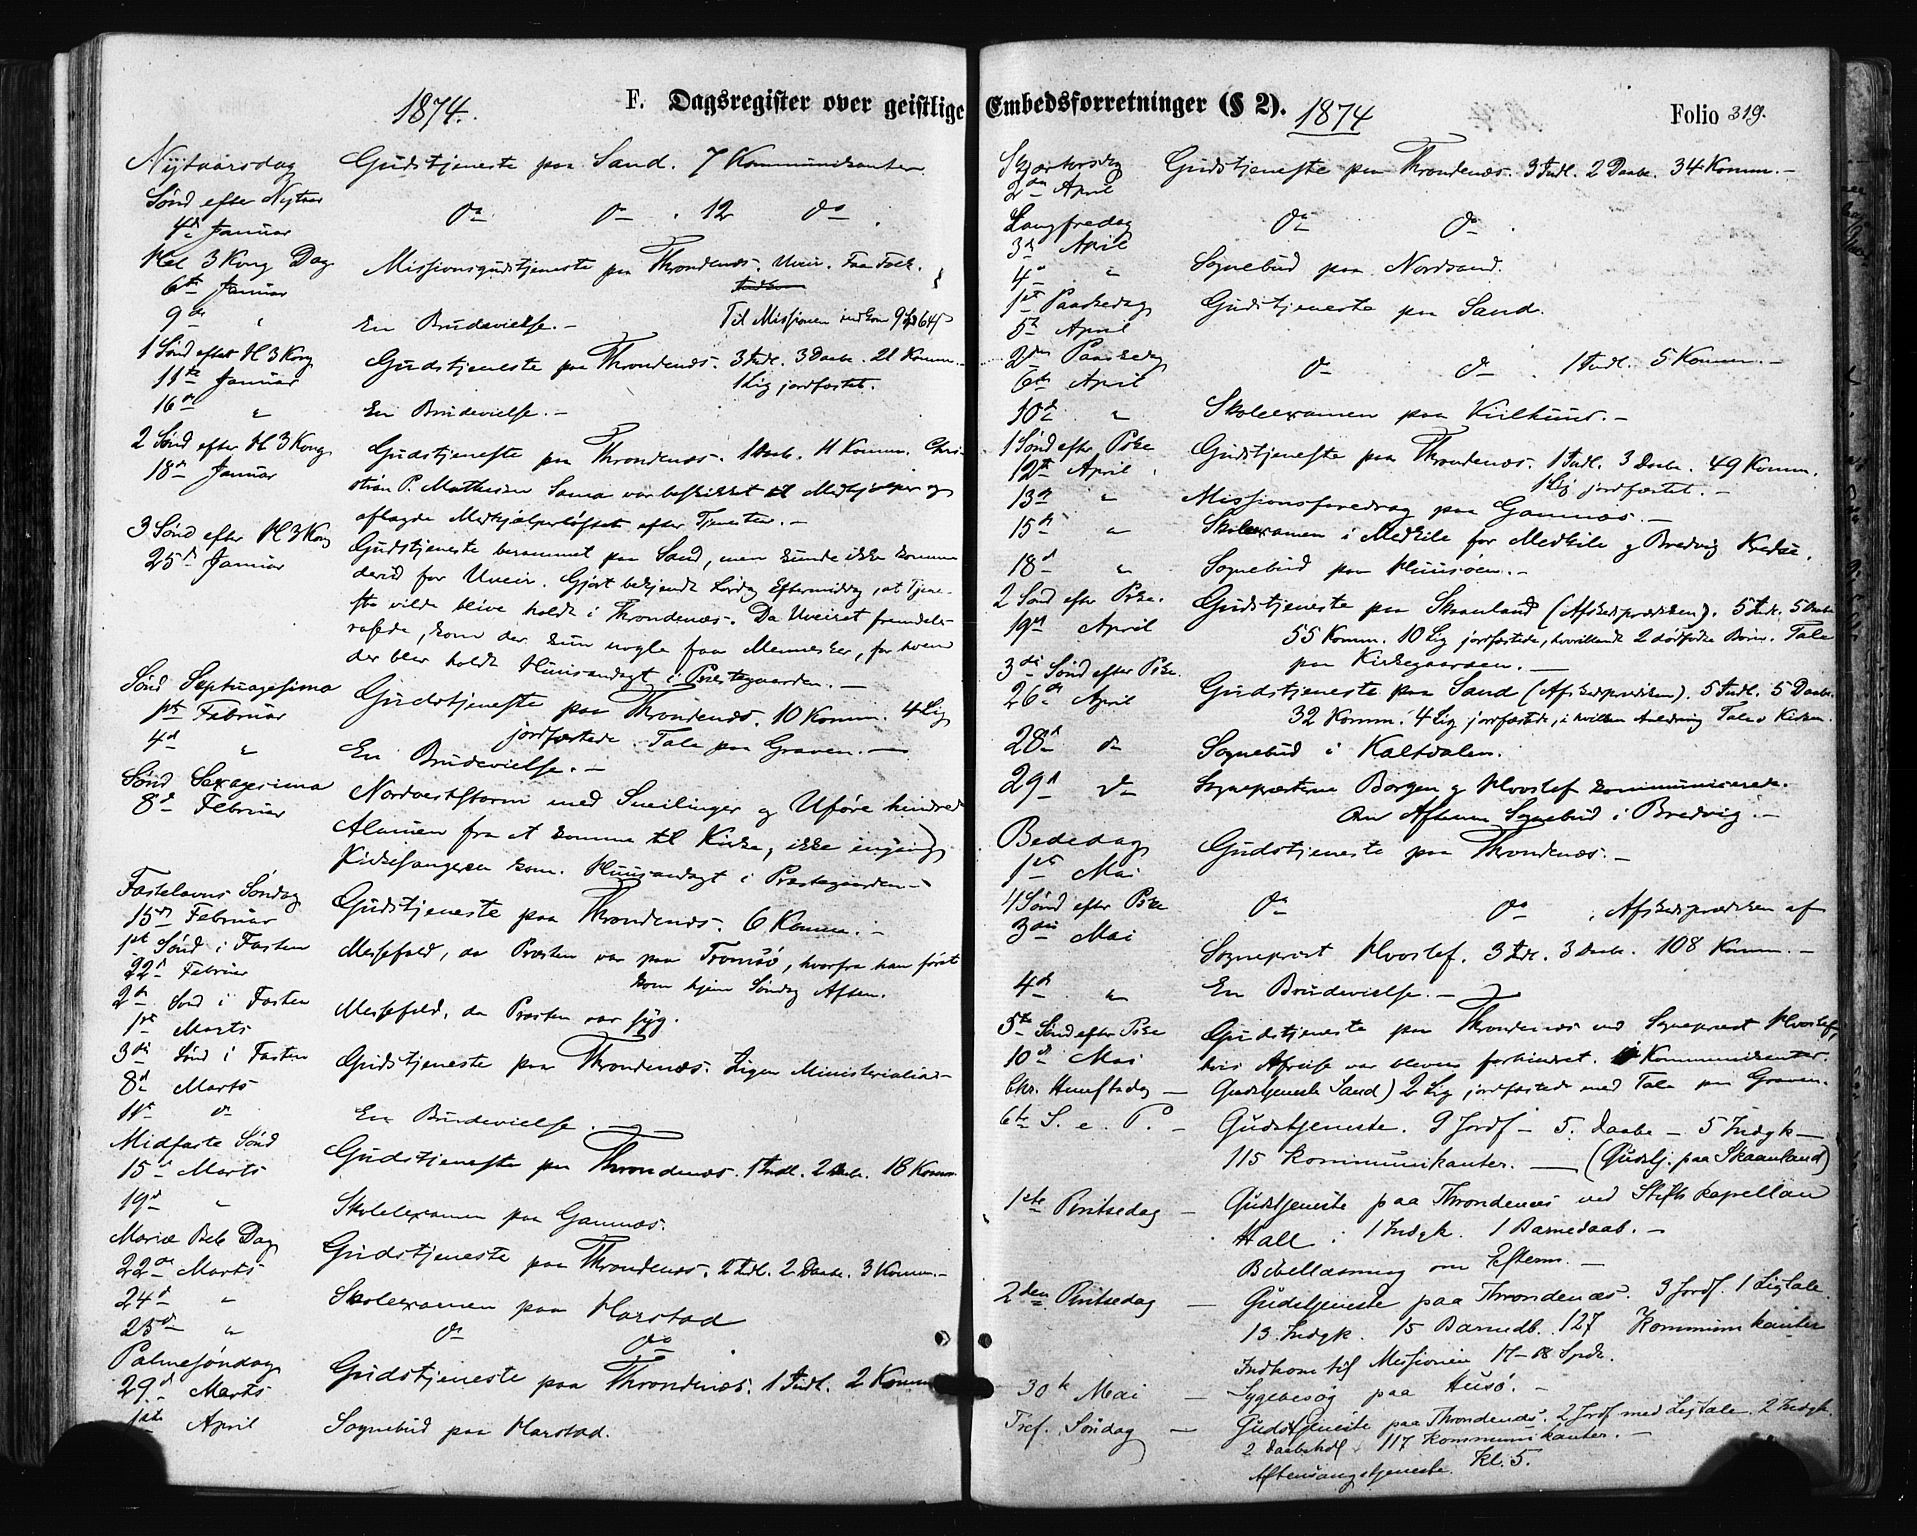 1874.
F. Dagsregister over geistlige
Nytaarsdag Gudstjeneste paa Sand. 7 Kommunikanter.
Sønd efter Nytaar
4d Januar do do . 12 do .
Hel 3 Kong Dag
6te Januar Missionsgudstjeneste paa Throndenæs. Uveir. Faa Folk.
9de " En Brudevielse. – Til Missionen indkom
1 Sønd efter H 3 Kong
11te Januar Gudstjeneste paa Throndenæs. 3 Indl. 3 Daabe. 21 Komm.
1 Lig jordfæstet.
16de " En Brudevielse. –
2 Sønd efter H 3 Kong
18de Januar Gudstjeneste paa Throndenæs. 1 Daab. 11 Komm. Chri-
stian P. Mathesen Sama var beskikket til Medhjælper og
aflagde Medhjælperløftet efter Tjenesten. –
3 Sønd efter H 3 Kong
25d Januar Gudstjeneste berammet paa Sand, men kunde ikke komme
derid for Uveir. Gjort bekjendt Lørdag Eftermiddag, at Tjene-
ste vilde blive holdt i Throndenæs. Da Uveiret fremdeles
rasede, kom der kun nogle faa Mennesker, for hvem
der blev holdt Huusandagt i Præstegaarden. –
Sønd Septuagesima
1st Februar Gudstjeneste paa Throndenæs. 10 Komm. 4 Lig
jordfæstede. Tale paa Graven. –
4d " En Brudevielse. –
Sønd Sexagesima
8d Februar Nordveststorm med Sneilinger og Uføre hindred
Almuen fra at komme til Kirke, ikke engang
Kirkesangeren kom. Huusandagt i Præstegaarden –
Fastelavns Søndag
15de Februar Gudstjeneste paa Throndenæs. 6 Komm. –
1st Sønd i Fasten
22d Februar Messefald, da Provsten var paa Tromsø, hvorfra han først
kom hjem Søndag Aften.
2de Sønd i Fasten
1st Marts Messefald, da Provsten var syg.
3die Sønd i Fasten
8d Marts Gudstjeneste paa Throndenæs. Ingen Ministerialia –
11te do En Brudevielse. –
Midfaste Sønd
15d Marts Gudstjeneste paa Throndenæs. 1 Indl. 2 Daabe. 18 Komm
19d " Skoleexamen paa Gamnæs.
Mariæ Beb Dag
22de Marts Gudstjeneste paa Throndenæs. 2 Indl. 2 Daabe. 3 Komm. –
24d " Skoleexamen paa Harstad
25d " do do
Palmesøndag
29d Marts Gudstjeneste paa Throndenæs. 1 Indl. 2 Komm
1ste April Sognebud paa Harstad.
Embedsforretninger (§ 2). 1874 Folio 319.
Skjærtorsdag
2den April Gudstjeneste paa Throndenæs. 3 Indl. 2 Daabe. 34 Komm. –
Langfredag
3d April do do .
4d " Sognebud paa Nordsand.
1st Paaskedag
5te April Gudstjeneste paa Sand.
2den Paaskedag
6te April do do . 1 Indl. 5 Komm. –
10d " Skoleexamen paa –
1 Sønd efter Pske
12te April Gudstjeneste paa Throndenæs. 1 Indl. 3 Daabe. 49 Komm.
1 Lig jordfæstet. –
13de " Missionsforedrag paa Gamnæs. –
15de " Skoleexamen i Medkile for Medkile og Bredvig Kredse.
18d " Sognebud paa Huusøen. –
2 Sønd efter Pske.
19de April Gudstjeneste paa Skaanland (Afskedsprædiken). 5 Indl. 5 Daabe
55 Komm. 10 Lig jordfæstede, hvoriblandt 2 dødfødte Børn. Tale
paa Kirkegaarden. –
3die Sønd efter Pske.
26de April Gudstjeneste paa Sand (Afskedsprædiken). 5 Indl. 5 Daabe.
32 Komm. 4 Lig jordfæstede, i hvilken Anledning Tale i Kirken.
28d do Sognebud i Kaltdalen.
29d do Sognepræsterne Borgen og Hvoslef kommunicerede.
Om Aftenen Sognebud i Bredvig. –
Bededag
1st Mai Gudstjeneste paa Throndenæs. –
4 Sønd efter Pske
3die Mai do do . Afskedsprædiken af
Sogneprest Hvoslef. 3 Indl. 3 Daabe. 108 Komm. –
4d " En Brudevielse. –
5te Sønd efter Pske
10d Mai Gudstjeneste paa Throndenæs ved Sogneprest Hvoslef,
hvis Afreise var bleven forhindret. Kommunikanter.
Chr. Himftsdag – Gudstjeneste Sand) 2 Lig jordfæstede med Tale paa Graven.
6te S. e. P. – Gudstjeneste. 9 Jordf – 5. Daabe – 5 Indgk –
115 Kommunikanter. – (Gudstj. paa Skaanland)
1ste Pintsedag – Gudstjeneste paa Throndenæs ved Stiftskapellan
Hall : 1 Indgk. 1 Barnedaab. –
Bibellæsning om Efterm. –
2den Pintsedag – Gudstjeneste paa Throndenæs. 3 Jordf. 1 Ligtale.
13 Indgk. 15 Barnedb. 127 Kommunikanter
Indkom til Missionen 17 – 18 Spdr.
30te Mai – Sygebesøg paa Husø. –
Tref. Søndag – Gudstjeneste paa Throndenæs. 2 Jordf med Ligtale. 2 Indgk.
2 Daabshdl. 117 Kommunikanter. –
Aftensangstjeneste Kl. 5.